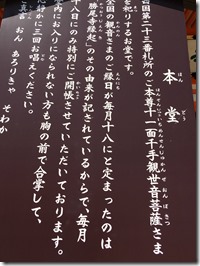 本堂
国第二十三番札所のご本尊十一面千手観世音菩薩さま
祀りするお堂です。
全国の観音さまのご縁日が毎月十八日にと定まったのは
勝尾寺縁起」のその由来が記されているからで、毎月
十八日にのみ特別にご開帳させていただいております。
内にお入りになられない方も胸の前で合掌して、
かに三回お唱えください。
真言 おん あろりきゃ そわか